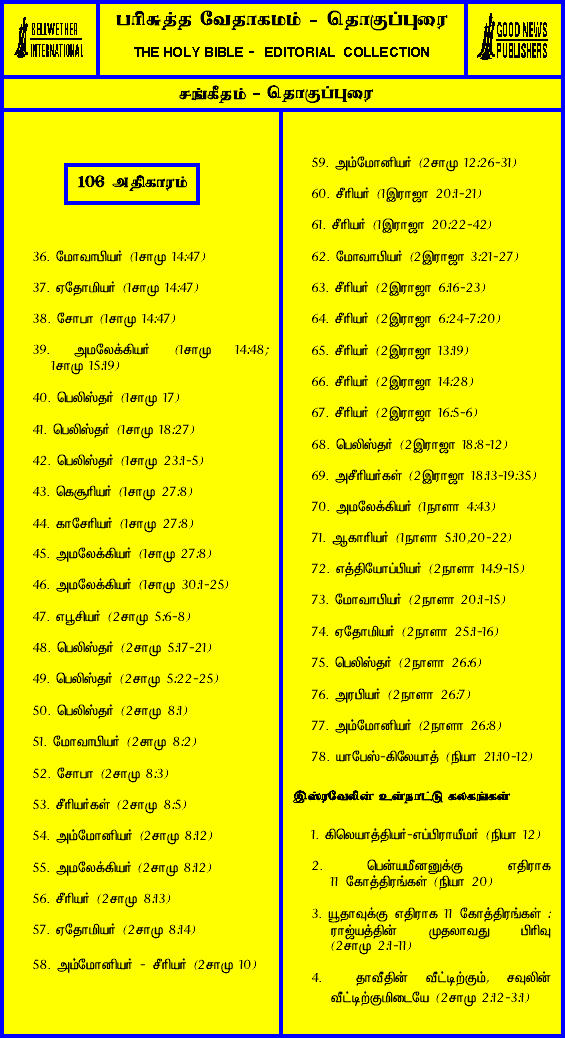 BELLWETHER
INTERNATIONAL
பரிசுத்த வேதாகமம் - தொகுப்புரை
THE HOLY BIBLE - EDITORIAL COLLECTION
GOOD NEWS
PUBLISHERS
சங்கீதம் - தொகுப்புரை
106 அதிகாரம்
36. மோவாபியர் (1சாமு 14:47)
37. ஏதோமியர் (1சாமு 14:47)
38. சோபா (1சாமு 14:47)
39. அமலேக்கியர் (1சாமு 14:48;
1சாமு 15:19)
40. பெலிஸ்தர் (1சாமு 17)
41. பெலிஸ்தர் (1சாமு 18:27)
42. பெலிஸ்தர் (1சாமு 23:1-5)
43. கெசூரியர் (1சாமு 27:8)
44. காசேரியர் (1சாமு 27:8)
45. அமலேக்கியர் (1சாமு 27:8)
46. அமலேக்கியர் (1சாமு 30:1-25)
47. எபூசியர் (2சாமு 5:6-8)
48. பெலிஸ்தர் (2சாமு 5:17-21)
49. பெலிஸ்தர் (2சாமு 5:22-25)
50. பெலிஸ்தர் (2சாமு 8:1)
51. மோவாபியர் (2சாமு 8:2)
52. சோபா (2சாமு 8:3)
53. சீரியர்கள் (2சாமு 8:5)
54. அம்மோனியர் (2சாமு 8:12)
55. அமலேக்கியர் (2சாமு 8:12)
56. சீரியர் (2சாமு 8:13)
57. ஏதோமியர் (2சாமு 8:14)
58. அம்மோனியர் - சீரியர் (2சாமு 10)
59. அம்மோனியர் (2சாமு 12:26-31)
60. சீரியர் (1இராஜா 20:1-21)
61. சீரியர் (1இராஜா 20:22-42)
62. மோவாபியர் (2இராஜா 3:21-27)
63. சீரியர் (2இராஜா 6:16-23)
64. சீரியர் (2இராஜா 6:24-7:20)
65. சீரியர் (2இராஜா 13:19)
66. சீரியர் (2இராஜா 14:28)
67. சீரியர் (2இராஜா 16:5-6)
68. பெலிஸ்தர் (2இராஜா 18:8-12)
69. அசீரியர்கள் (2இராஜா 18:13-19:35)
70. அமலேக்கியர் (1நாளா 4:43)
71. ஆகாரியர் (1நாளா 5:10,20-22)
72. எத்தியோப்பியர் (2நாளா 14:9-15)
73. மோவாபியர் (2நாளா 20:1-15)
74. ஏதோமியர் (2நாளா 25:1-16)
75. பெலிஸ்தர் (2நாளா 26:6)
76. அரபியர் (2நாளா 26:7)
77. அம்மோனியர் (2நாளா 26:8)
78. யாபேஸ்-கிலேயாத் (நியா 21:10-12)
இஸ்ரவேலின் உள்நாட்டு கலகங்கள்
1. கிலெயாத்தியர்-எப்பிராயீமர் (நியா 12)
2. பென்யமீனனுக்கு எதிராக
11 கோத்திரங்கள் (நியா 20)
3. யூதாவுக்கு எதிராக 11 கோத்திரங்கள் :
ராஜ்யத்தின் முதலாவது பிரிவு
(2சாமு 2:1-11)
4. தாவீதின் வீட்டிற்கும், சவுலின்
வீட்டிற்குமிடையே (2சாமு 2:12-3:1)